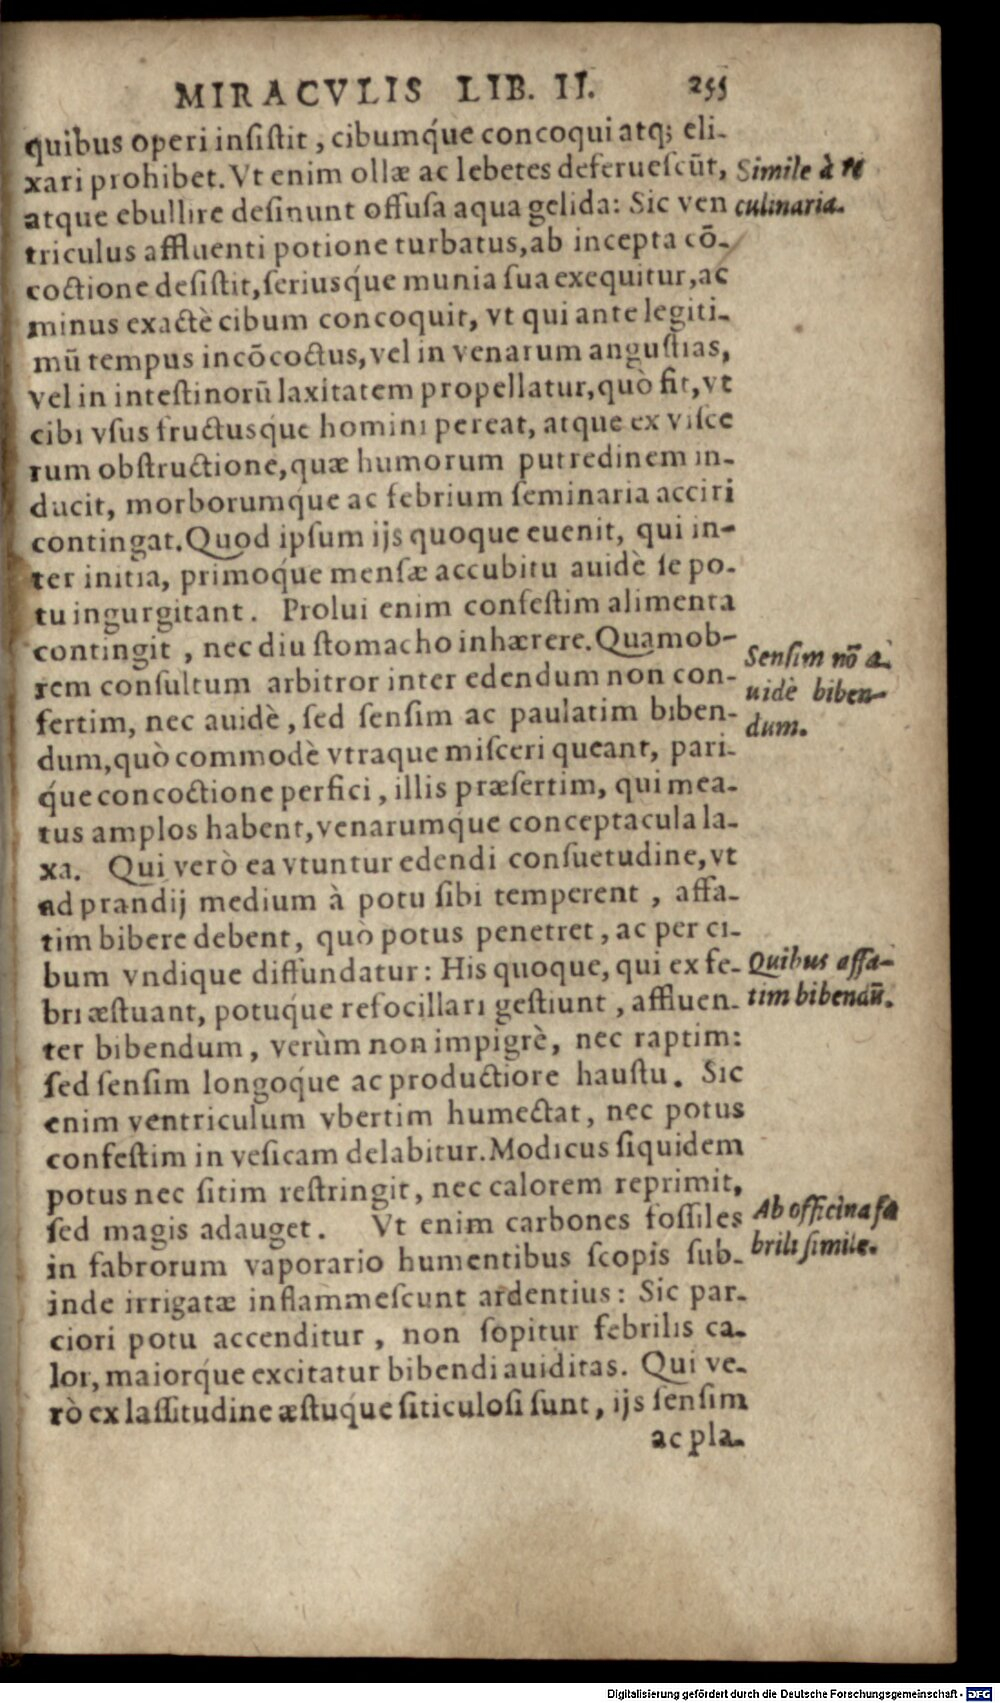 MIRACVLIS LIB. II. 255
quibus operi insistit, cibumq́ue concoqui atq; eli-
xari prohibet. Vt enim ollæ ac lebetes deferuescūt,
Simile à re
atque ebullire desinunt offusa aqua gelida: Sic ven
culinaria.
triculus affluenti potione turbatus, ab incepta cō-
coctione desistit, seriusq́ue munia sua exequitur, ac
minus exactè cibum concoquit, vt qui ante legiti-
mū tempus incōcoctus, vel in venarum angustias,
vel in intestinorū laxitatem propellatur, quò fit, vt
cibi vsus fructusque homini pereat, atque ex visce
rum obstructione, quæ humorum putredinem in-
ducit, morborumque ac febrium seminaria acciri
contingat. Quod ipsum ijs quoque euenit, qui in-
ter initia, primoq́ue mensæ accubitu auidè se po-
tu ingurgitant. Prolui enim confestim alimenta
contingit, nec diu stomacho inhærere. Quamob-
Sensim nō a-
rem consultum arbitror inter edendum non con-
uidè biben-
fertim, nec auidè, sed sensim ac paulatim biben-
dum.
dum, quò commodè vtraque misceri queant, pari-
q́ue concoctione perfici, illis præsertim, qui mea-
tus amplos habent, venarumque conceptacula la-
xa. Qui verò ea vtuntur edendi consuetudine, vt
ad prandij medium à potu sibi temperent, affa-
tim bibere debent, quò potus penetret, ac per ci-
bum vndique diffundatur: His quoque, qui ex fe-
Quibus affa-
bri æstuant, potuque refocillari gestiunt, affluen-
tim bibendū.
ter bibendum, verùm non impigrè, nec raptim:
sed sensim longoq́ue ac productiore haustu. Sic
enim ventriculum vbertim humectat, nec potus
confestim in vesicam delabitur. Modicus siquidem
potus nec sitim restringit, nec calorem reprimit,
sed magis adauget. Vt enim carbones fossiles
Ab officina fa
in fabrorum vaporario humentibus scopis sub-
brili simile.
inde irrigatæ inflammescunt ardentius: Sic par-
ciori potu accenditur, non sopitur febrilis ca-
lor, maiorq́ue excitatur bibendi auiditas. Qui ve-
rò ex lassitudine æstuque siticulosi sunt, ijs sensim
ac pla-
Digitalisierung gefördert durch die Deutsche Forschungsgemeinschaft - DFG